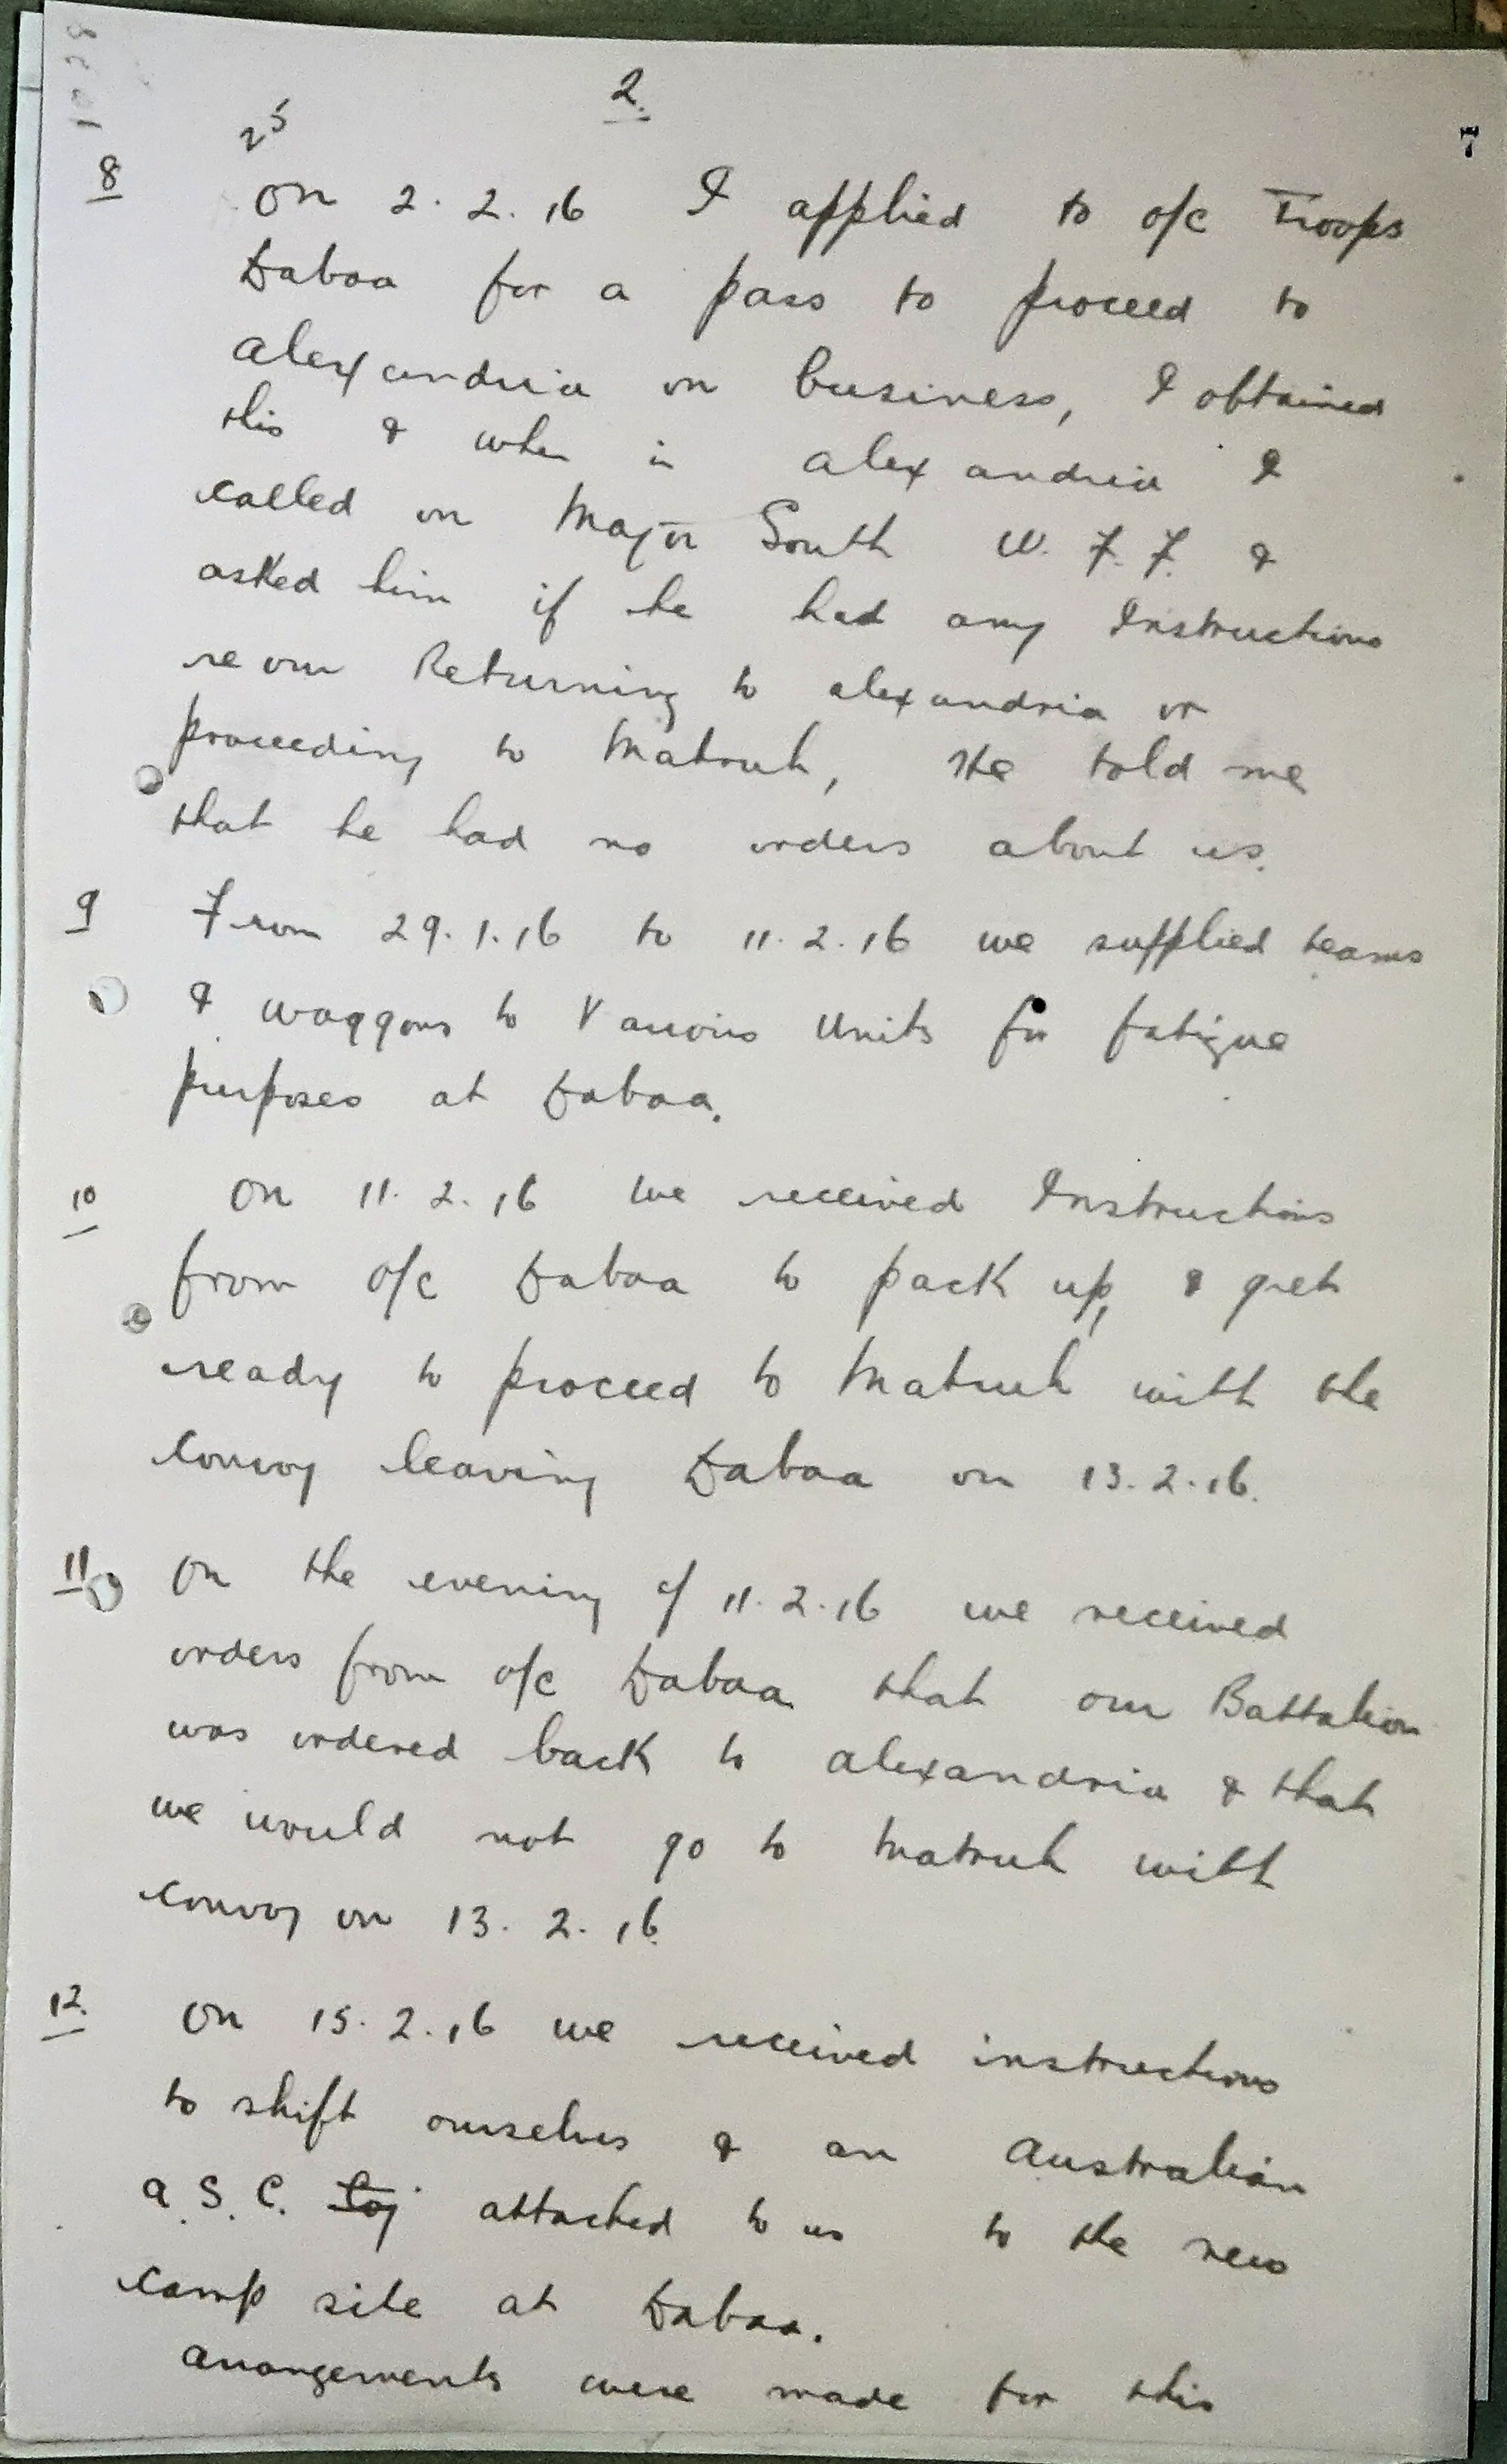 2.
25
7
8 On 2.2.16 I applied to o/c Troops
Dabaa for a pass to proceed to
Alexandria on business, I obtained
this & when in Alexandria I
called on Major South W.F.F. &
asked him if he had any Instructions
re our Returning to Alexandria or
proceeding to Matruh, He told me
that he had no orders about us.
9 From 29.1.16 to 11.2.16 we supplied teams
& waggons to Various Units for fatigue
purposes at Dabaa.
10 On 11.2.16 we received Instructions
from o/c Dabaa to pack up, & get
ready to proceed to Matruh with the
convoy leaving Dabaa on 13.2.16.
11 On the evening of 11.2.16 we received
orders from o/c Dabaa that our Battalion
was ordered back to Alexandria & that
we would not go to Matruh with
convoy on 13.2.16.
12. On 15.2.16 we received instructions
to shift ourselves & an Australian
A.S.C. attached to us to the new
camp site at Dabaa.
Arrangements were made for this